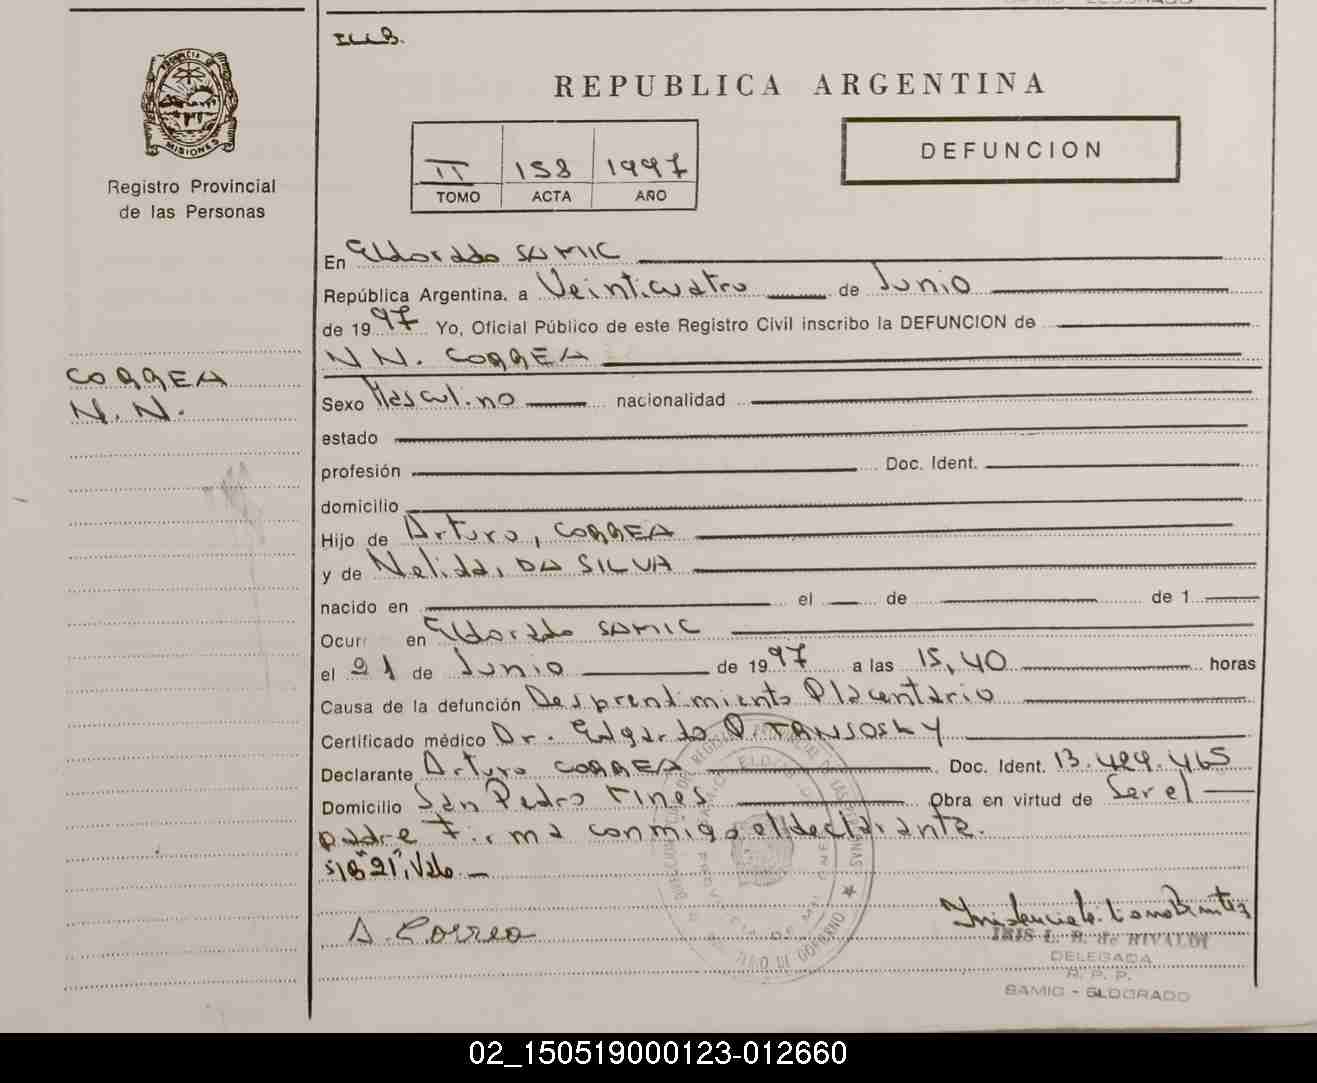 REPUBLICA ARGENTINA
PROVINCIA DE
MISIONES
Registro Provincial
de las Personas
II 158 1997
TOMO ACTA AÑO
DEFUNCION
En Eldorado SAMIC
República Argentina, a Veinticuatro de Junio
de 1997 Yo, Oficial Público de este Registro Civil inscribo la DEFUNCION de
N N. CORREA
CORREA
N. N.
Sexo Masculino nacionalidad
estado
profesión Doc. Ident.
domicilio
Hijo de Arturo, CORREA
y de Nelida, DA SILVA
nacido en el de de 1
Ocur en Eldorado SAMIC
el 21 de Junio de 1997 a las 15,40 horas
Causa de la defunción Desprendimiento Placentario
Certificado médico Dr. Edgardo
Declarante Arturo CORREA Doc. Ident. 13.429.465
Domicilio San Pedro Mnes Obra en virtud de Ser el
padre Firma conmigo el declarante.
s/b "21", Vale.
A. Correa
IRIS L. B. de RIVALDI
DELEGADA
R. P. P.
SAMIC - ELDORADO
02_150519000123-012660